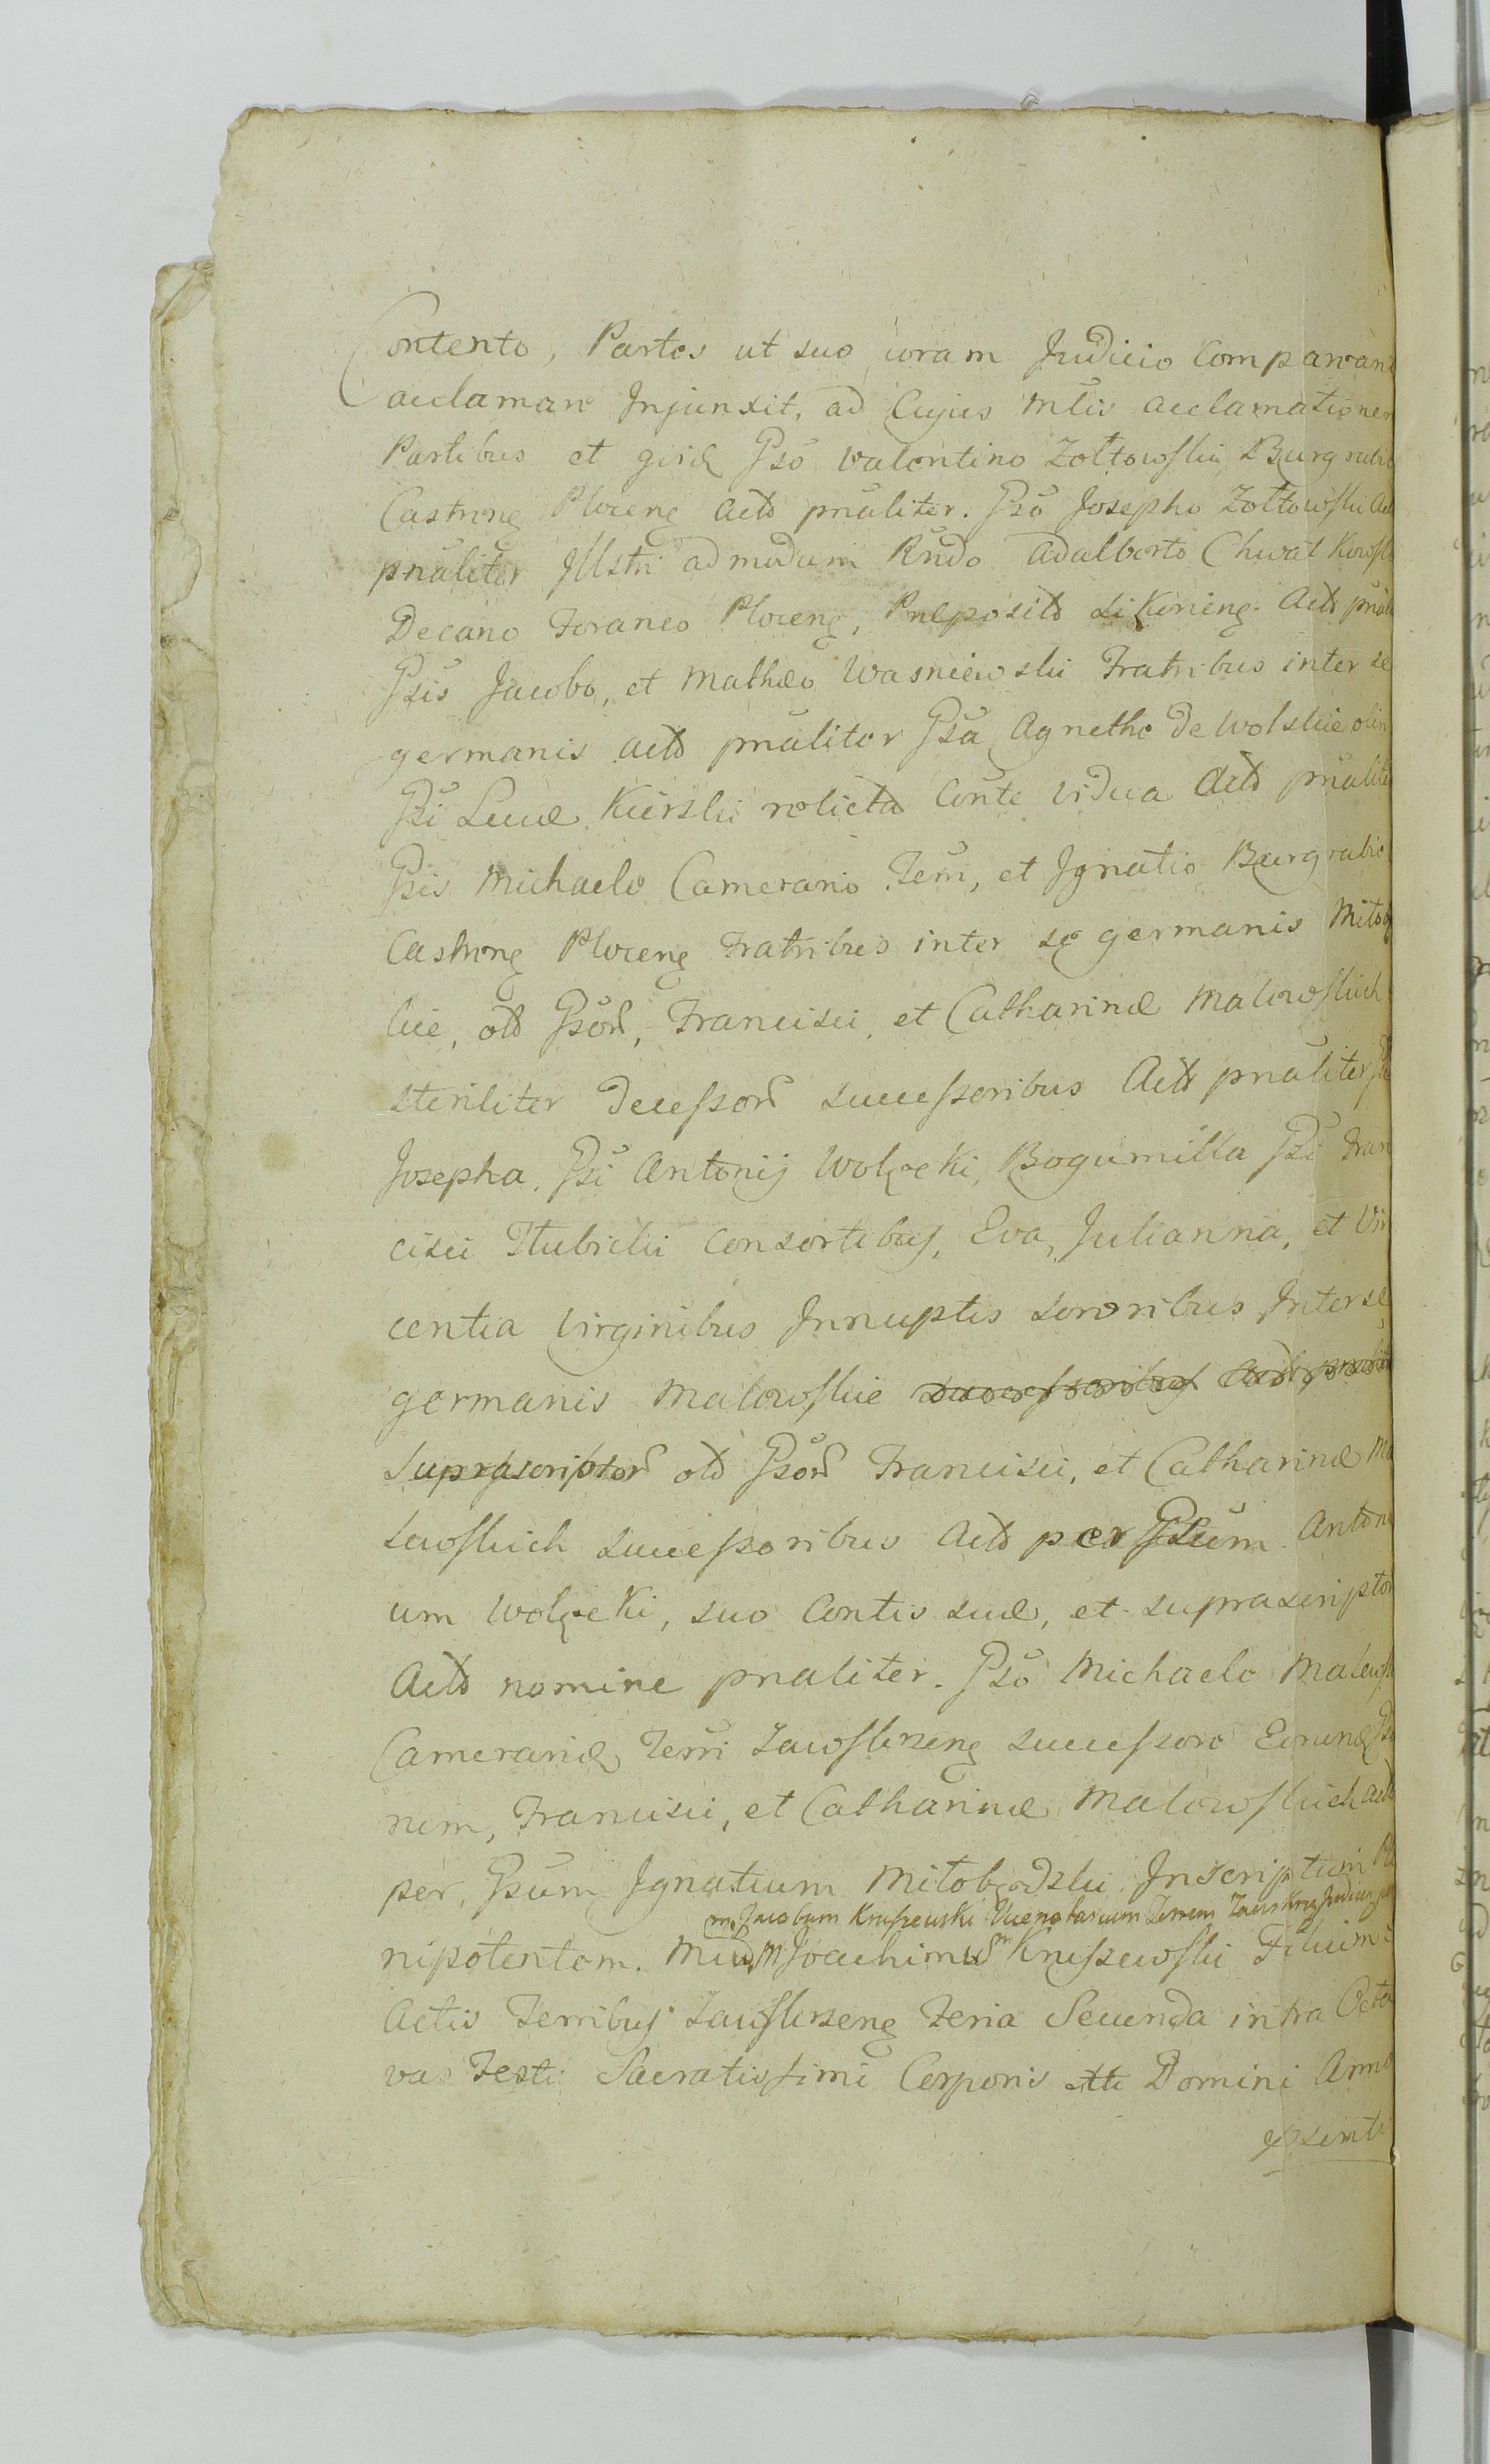 Contento, Partes ut suo coram Judicio Compareant
acclamare Injunxit, ad Cujus Mtis acclamationem
Partibus et Gso Valentino Zołtowski Burgrabio
Castrens Plocens Acto pnaliter. Gso Josepho Zołtowski Act
pnaliter Illstri admodum Rndo Adalberto Chwatkowski
Decano Foraneo Plocens, Præposito Act pnal
Gsis Jacobo, et Mathæo Wasniewski Fratribus inter se
germanis acto pnaliter Gsa Agnethe de Wolskie olim
Gsi Lucæ Kierski relicta Conte vidua Acto pnaliter
Gsis Michaele Camerario Tem, et Ignatio Burgrabio
Castrens Plocens Fratribus inter se germanis Miłob
kie, old Gsor, Francisci, et Catharinæ Malewskich
steriliter decessor successoribus Acto pnaliter
Josepha Gsi Antonij Wolecki, Bogumilla Gsi Fran
cisci consortibus, Eva, Julianna, et Vin
centia Virginibus Innuptis Sororibus Inter se
germanis Malewskie successoribus Acto pnaliter
Suprascriptor old Gsor Francisci, et Catharinæ Ma
lewskich Successoribus Acto per Gsum Antoni
um Wolecki, suo Contis suæ, et suprascriptor
Acto nomine pnaliter. Gso Michaele Malewski
Camerario Terri Zawskrzens successore
nem, Francisci, et Catharinæ Malewskich acto
per, Gsum Ignatium Miłobędzki Inscriptum Ple
m. Jacobum Kruszewski Vicenotarium Terrem Zawskrz Judicem
nipotentem. Joachimum Kruszewski Filium
Actis Terribus Zawskrzens Feria Secunda intra Octa
vas Festi Sacratissimi Corporis Xti Domini Anno